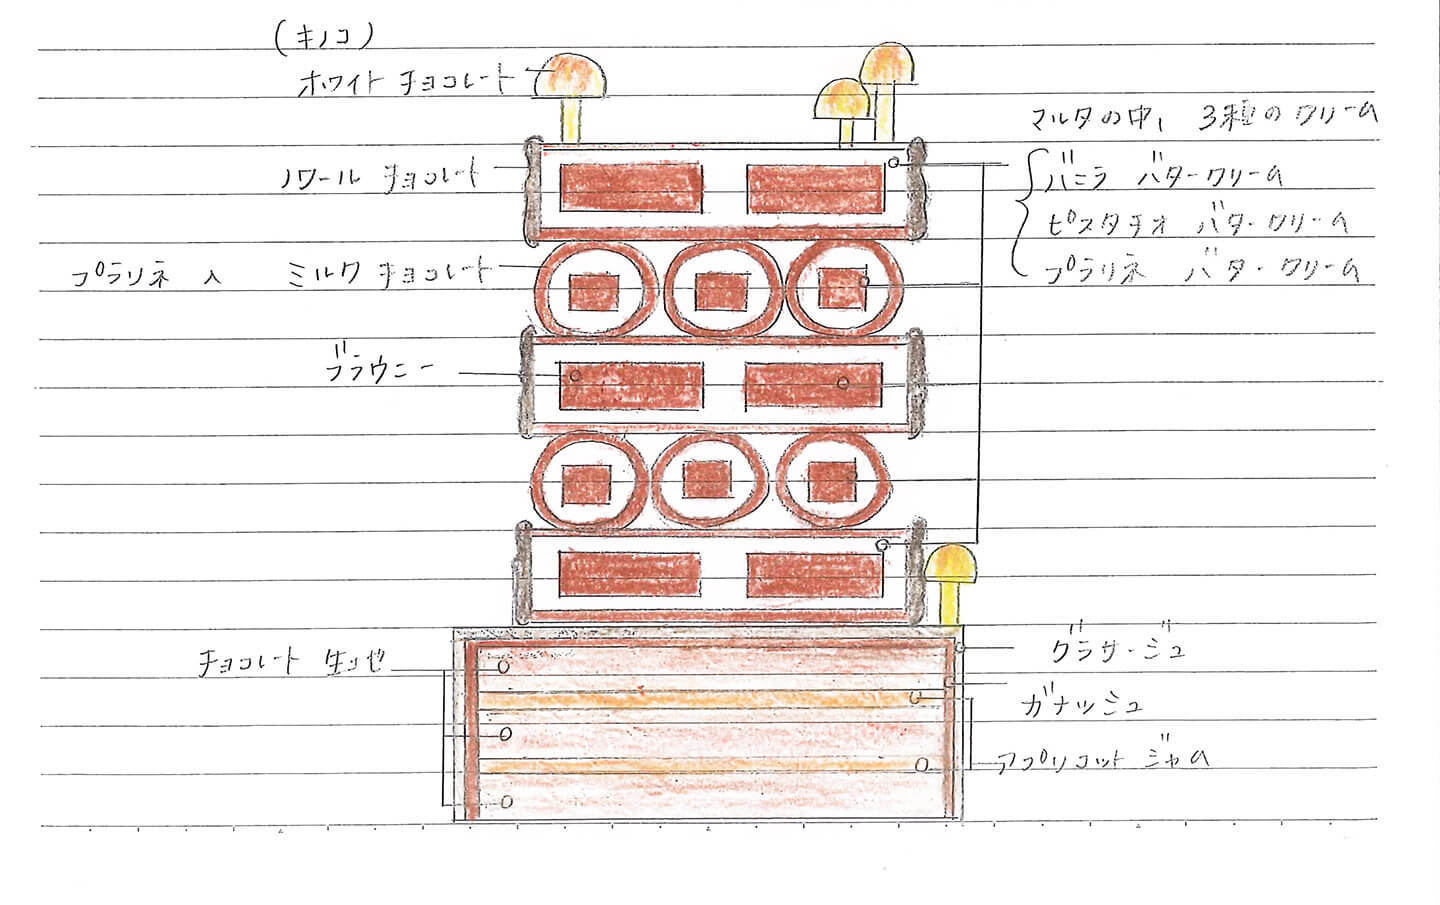 (キノコ)
ホワイト チョコレート
マルタの中, 3種のクリーム
ノワール チョコレート
バニラ バタークリーム
ピスタチオ バタークリーム
プラリネ バタークリーム
プラリネ 入 ミルク チョコレート
ブラウニー
チョコレート 生地
グラサージュ
ガナッシュ
アプリコット ジャム